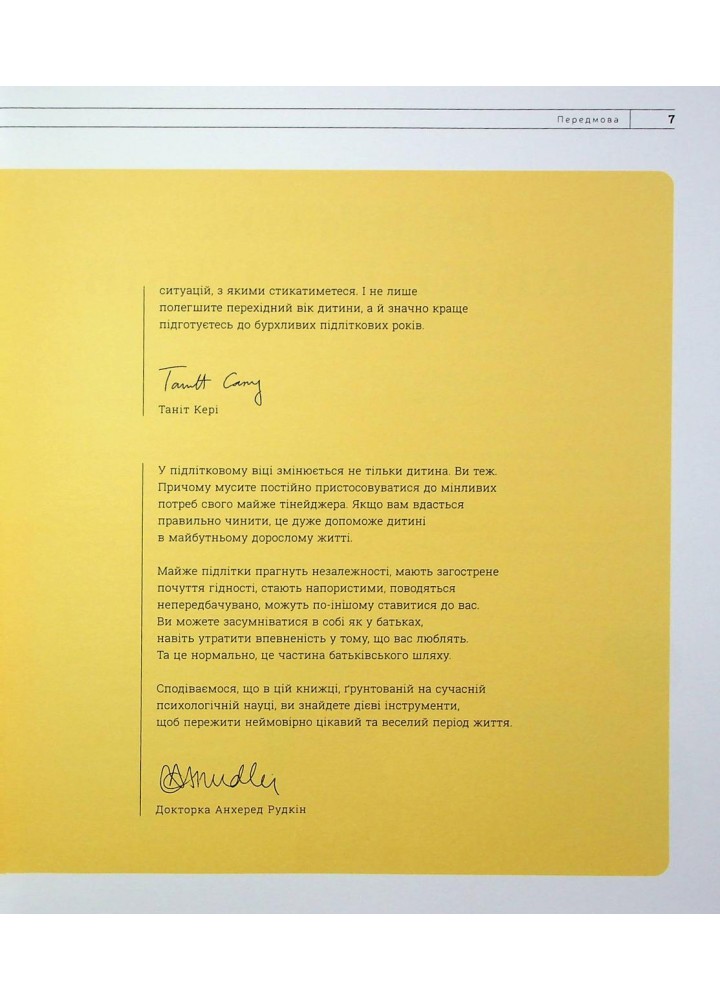 Передмова 7
ситуацій, з якими стикатиметеся. І не лише
полегшите перехідний вік дитини, а й значно краще
підготуєтесь до бурхливих підліткових років.
Таніт Кері
У підлітковому віці змінюється не тільки дитина. Ви теж.
Причому мусите постійно пристосовуватися до мінливих
потреб свого майже тінейджера. Якщо вам вдасться
правильно чинити, це дуже допоможе дитині
в майбутньому дорослому житті.
Майже підлітки прагнуть незалежності, мають загострене
почуття гідності, стають напористими, поводяться
непередбачувано, можуть по-іншому ставитися до вас.
Ви можете засумніватися в собі як у батьках,
навіть утратити впевненість у тому, що вас люблять.
Та це нормально, це частина батьківського шляху.
Сподіваємося, що в цій книжці, ґрунтованій на сучасній
психологічній науці, ви знайдете дієві інструменти,
щоб пережити неймовірно цікавий та веселий період життя.
Докторка Анхеред Рудкін